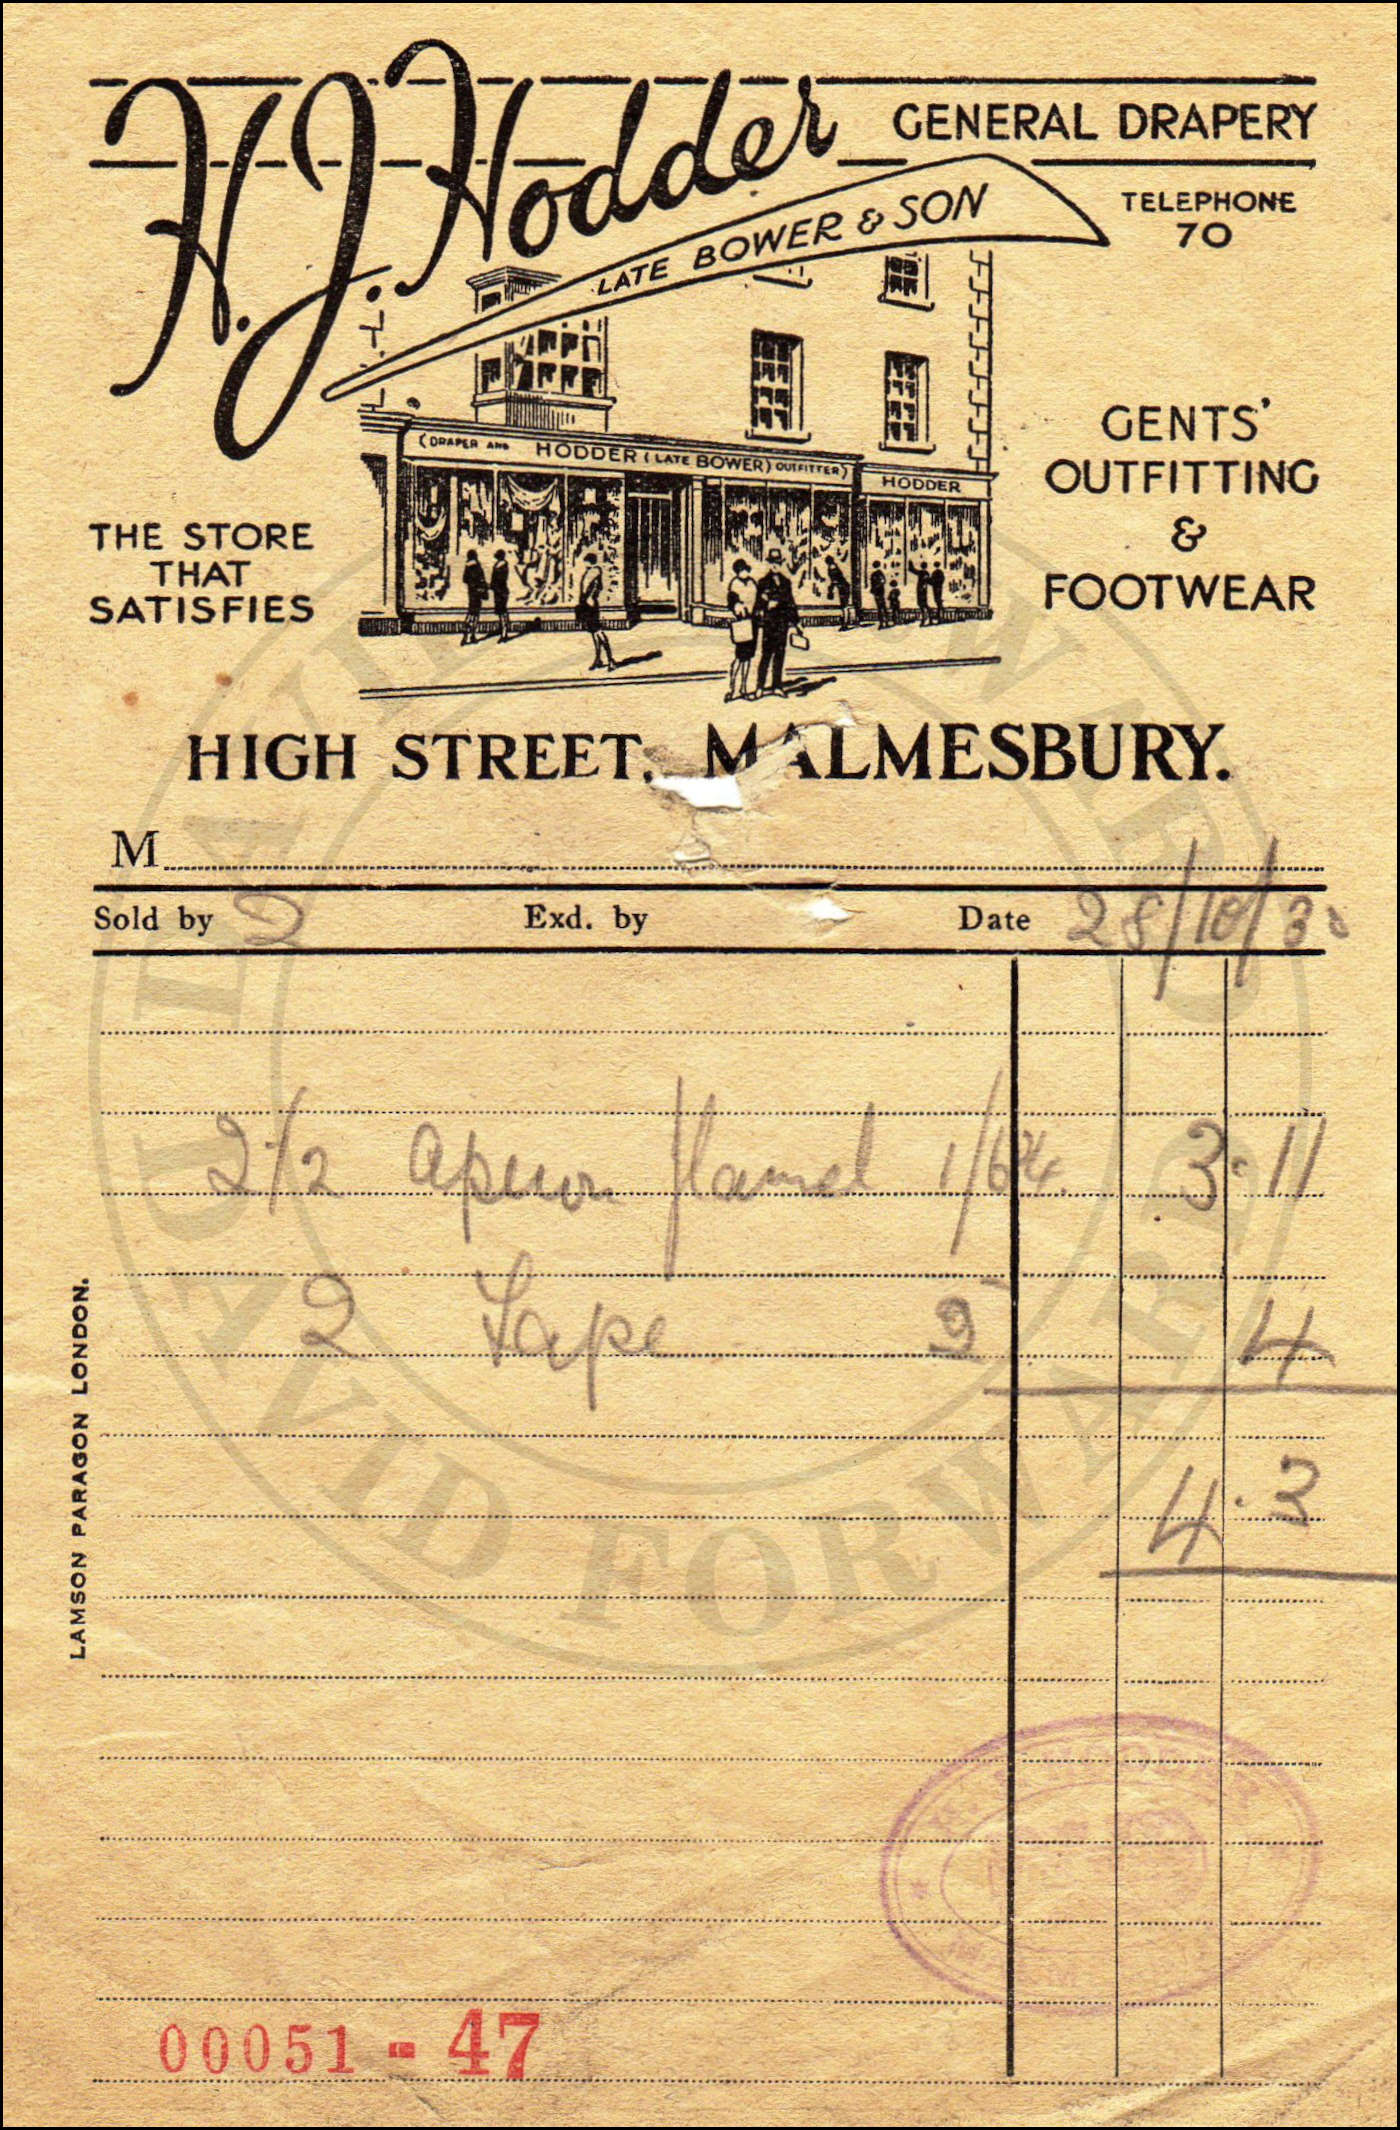 H. J. Hodder
GENERAL DRAPERY
LATE BOWER & SON
TELEPHONE
70
(DRAPER AND HODDER (LATE BOWER) OUTFITTER)
HODDER
GENTS'
OUTFITTING
&
FOOTWEAR
THE STORE
THAT
SATISFIES
HIGH STREET, MALMESBURY.
M
Sold by 2 Exd. by Date 28/10/30
2 1/2 apron flannel 1/6¾. 3 . 11
2 Tape 2 4
4 . 3
LAMSON PARAGON LONDON.
00051 - 47